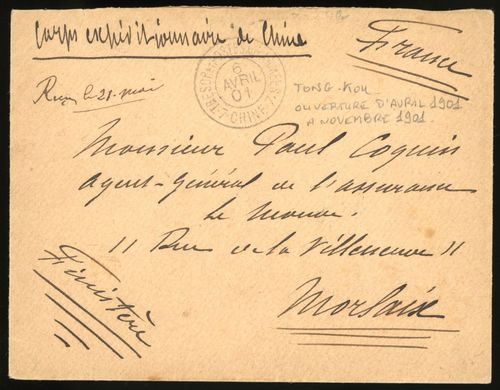 Corps expéditionnaire de Chine
France
TRESOR ET POSTES AUX ARMEES
6
AVRIL
01
CHINE
Reçu le 21 mai
TONG-KOU
OUVERTURE D'AVRIL 1901
A NOVEMBRE 1901.
Monsieur Paul Coquin
Agent-Général de l'assurance
Le Monde.
11 Rue de la Villeneuve 11
Finistère
Morlaix